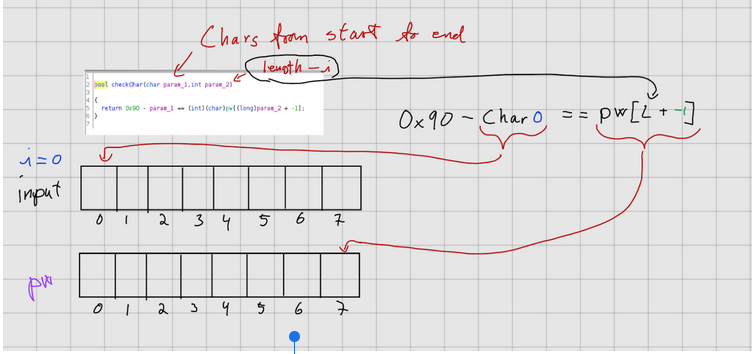 Chars from start to end
length - i
1
2 bool checkChar(char param_1,int param_2)
3
4 {
5 return 0x90 - param_1 == (int)(char)pw[(long)param_2 + -1];
6 }
7
0x90 - Char 0 == pw[L + -1]
i=0
input
0 1 2 3 4 5 6 7
pw
0 1 2 3 4 5 6 7